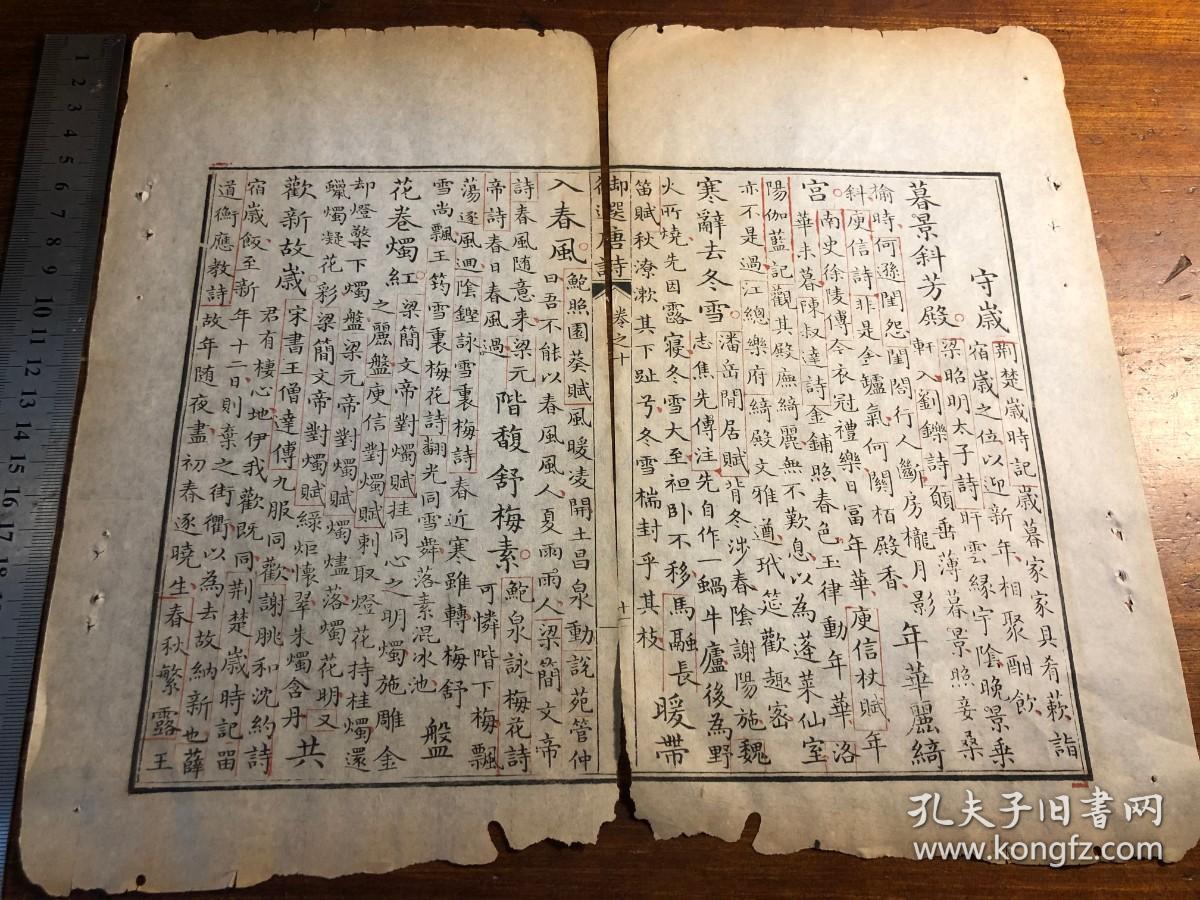 守歲
荊楚歲時記歲暮家家具肴蔌詣
宿歲之位以迎新年相聚酣飲
暮景斜芳殿
梁昭明太子詩旰雲緣宇陰晚景乘
軒入劉鑠詩頹垂薄暮景照妾桑
榆時何遜閨怨閨閤行人斷房櫳月影
斜庾信詩非是金鑪氣何關栢殿香
年華麗綺
宮
南史徐陵傳今衣冠禮樂日富年華庾信杖賦年
華未暮陳叔達詩金鋪照春色玉律動年華洛
陽伽藍記觀其殿廡綺麗無不歎息以為蓬萊仙室
亦不是過江總樂府綺殿文雅遒玳筵歡趣密
寒辭去冬雪
潘岳閒居賦背冬涉春陰謝陽施魏
志焦先傳注先自作一蝸牛廬後為野
火所燒先因露寢冬雪大至袒卧不移馬融長
笛賦秋潦漱其下趾兮冬雪揣封乎其枝
暖帶
御選唐詩 卷之十 十一
入春風
鮑照園葵賦風暖凌開土昌泉動說苑管仲
曰吾不能以春風風人夏雨雨人梁簡文帝
詩春風随意來梁元
帝詩春日春風過
階馥舒梅素
鮑泉詠梅花詩
可憐階下梅飄
蕩逐風迴陰鏗詠雪裏梅詩春近寒雖轉梅舒
雪尚飄王筠雪裏梅花詩翻光同雪舞落素混冰池
盤
花卷燭紅
梁簡文帝對燭賦挂同心之明燭施雕金
之麗盤庾信對燭賦刺取燈花持桂燭還
却燈檠下燭盤梁元帝對燭賦燭燼落燭花明又
蠟燭凝花彩梁簡文帝對燭賦綠炬懷翠朱燭含丹
共
歡新故歲
宋書王僧達傳九服同歡謝朓和沈約詩
君有棲心地伊我歡既同荊楚歲時記留
宿歲飯至新年十二日則棄之街衢以為去故納新也薛
道衡應教詩故年随夜盡初春逐曉生春秋繁露王
1 2 3 4 5 6 7 8 9 10 11 12 13 14 15 16 17 18
孔夫子旧书网
www.kongfz.com